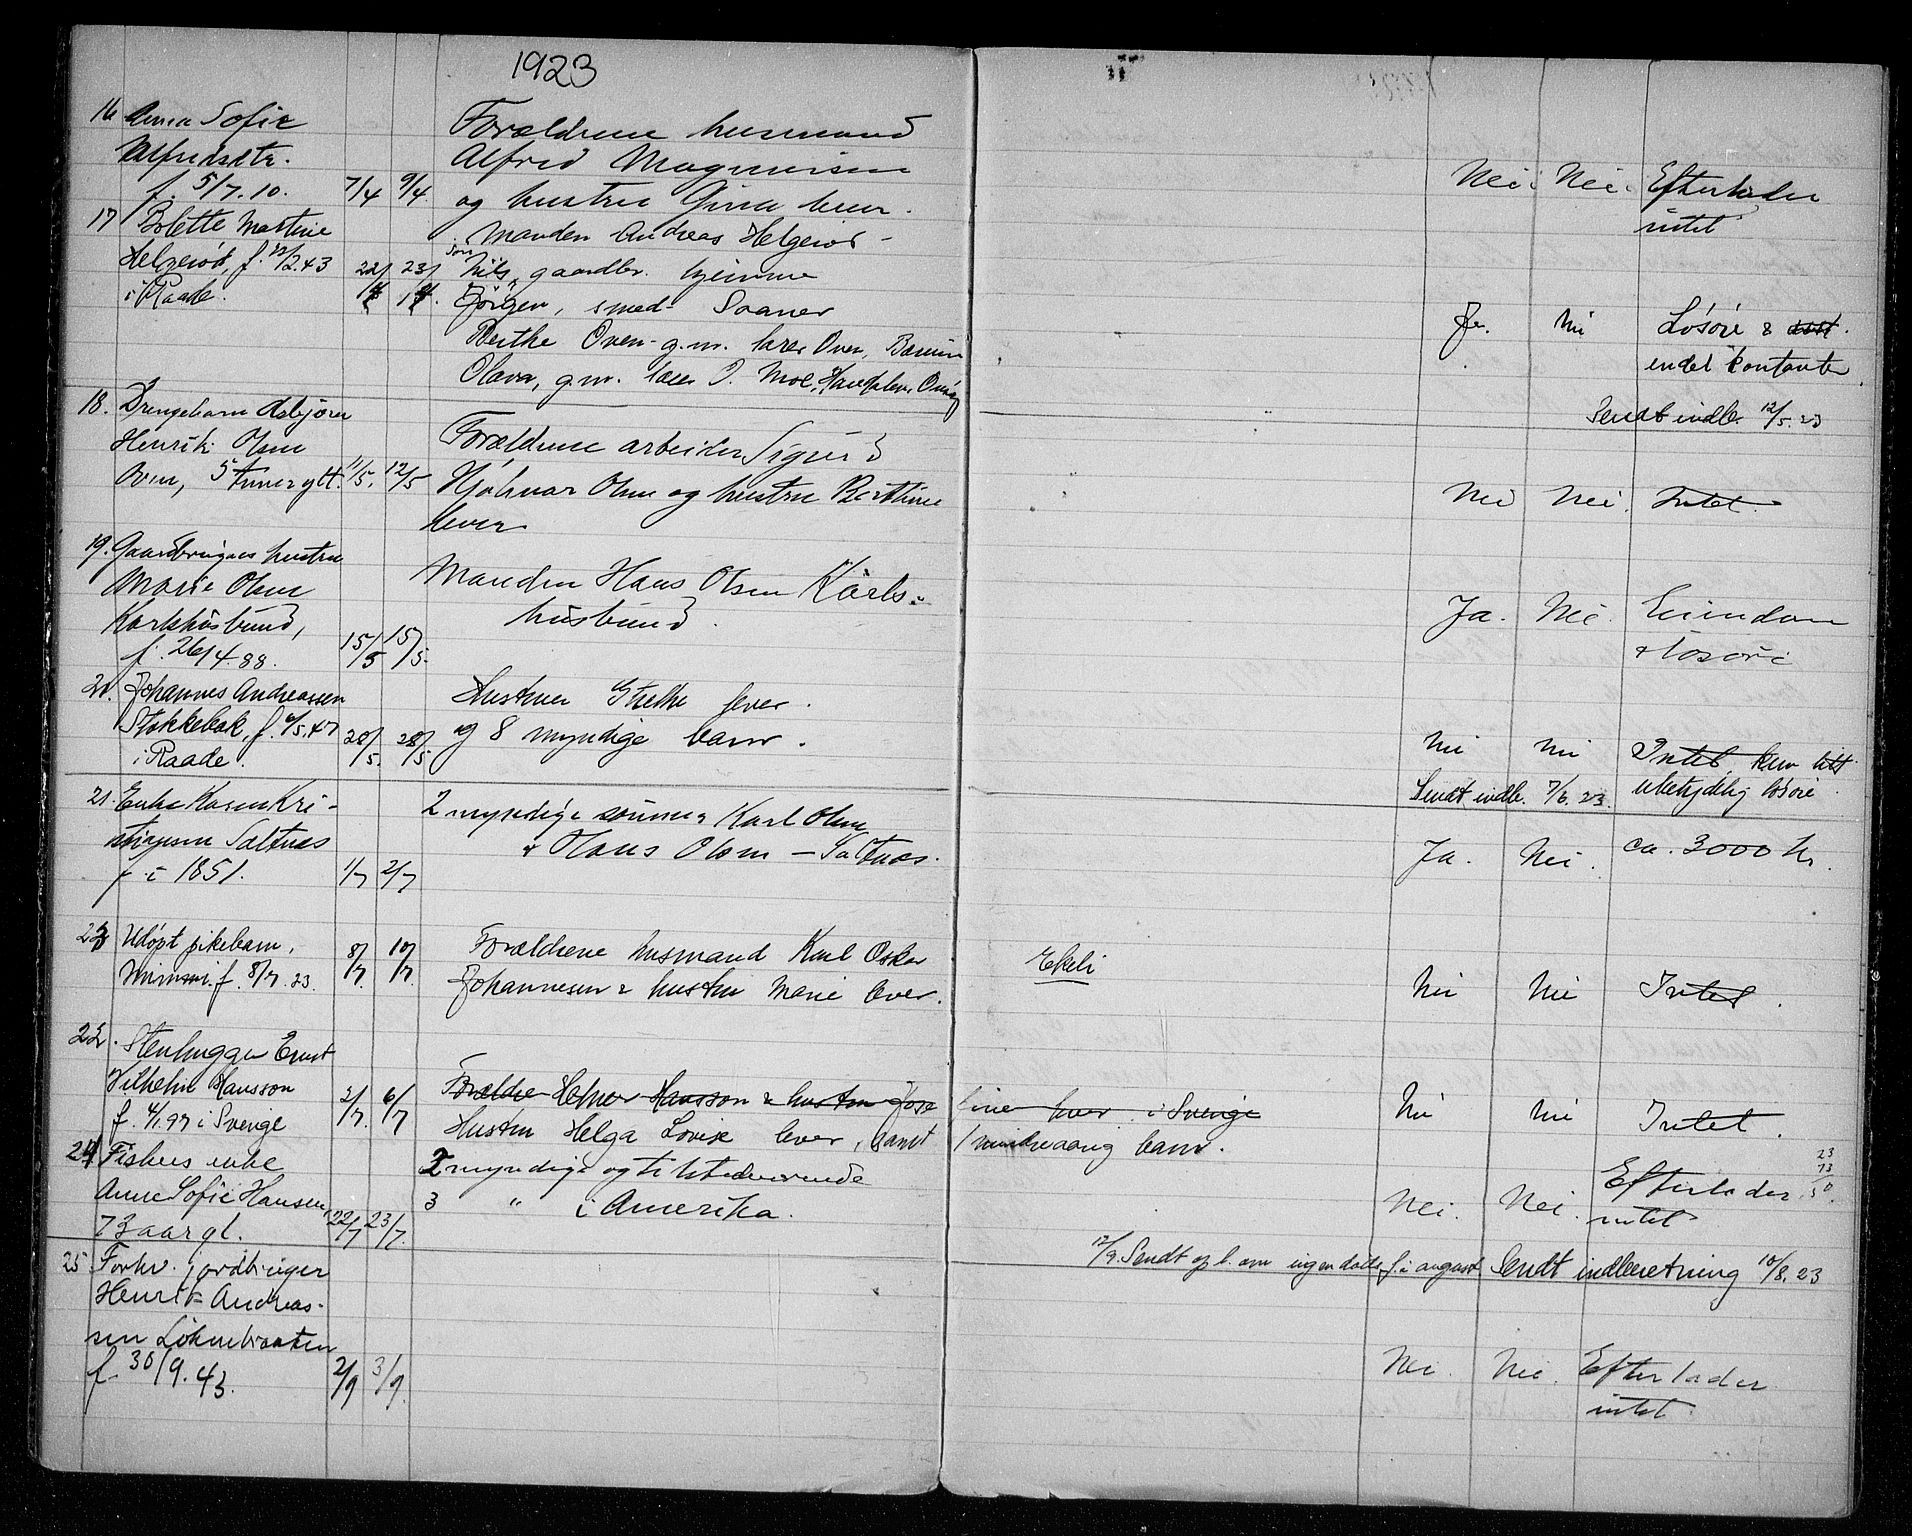 1923
16 Anna Sofie
Alfredsdtr.
f. 5/7.10. 7/4 9/4
Forældrene husmand
Alfred Magnussen
og hustru Gina lever.
Nei. Nei. Efterlader
intet
17 Bolette Martine
Helgerød, f. /2.43
i Raade. 22/4 23/4.
Manden Andreas Helgerød -
Nils, gaardbr. hjemme
Jörgen, smed - Saaner
Berthe Oven - g.m. lærer Oven, Bærum
Olava, g.m. lærer J. Moe,
Ja. Nei Løsøre &
endel kontanter.
Sendt indb. 12/5.23
18. Drengebarn Asbjörn
Henrik Olsen
Oven, 5 timer gl. 11/5. 12/5
Forældrene arbeider Sigurd
Hjalmar Olsen og hustru Berthine
lever
Nei Nei. Intet.
19. Gaardbrugers hustru
Marie Olsen
Karlshusbund,
f. 26/4.88. 15/5 15/5.
Manden Hans Olsen Karls-
husbund.
Ja. Nei. Eiendom
& løsøre
20. Johannes Andreassen
Stokkebæk, f. /5.47
i Raade. 28/5. 28/5
Hustruen Grethe lever.
og 8 myndige barn.
Nei Nei Intet kun litt
ubetydelig løsøre.
Sendt indb. 7/6.23.
21. Enke Karen Kri-
stiansen Saltnes
f. i 1851. 1/7 2/7
2 myndige sønner Karl Olsen
& Hans Olsen - Saltnes.
Ja. Nei. ca. 3000 kr.
22 Udøpt pikebarn,
f. 8/7.23. 8/7. 10/7.
Forældrene husmand Karl Oskar
Johannesen & hustru Marie lever.
Ekeli
Nei Nei Intet.
23. Stenhugger Ernst
Vilhelm Hansson
f. 4/1.97 i Sverige 2/7. 6/7
Forældre Helmer Hansson & hustru Jose
fine lever i Sverige
Hustru Helga Lovise lever, samt 1 mindreaarig barn.
Nei Nei Intet.
24 Fiskers enke
Anne Sofie Hansen,
73 aar gl. 22/7 23/7.
2 myndige og tilstedeværende
3 " i Amerika.
Nei. Nei. Efterlader
intet
23
73
50
12/9. Sendt opg. om ingen døde f. i august. Sendt indberetning 10/8.23
25 Forhv. jordbruger
Henrik Andreas-
sen Löknebraaten
f. 30/9.43. 2/9 3/9.
Nei. Nei. Efterlader
intet